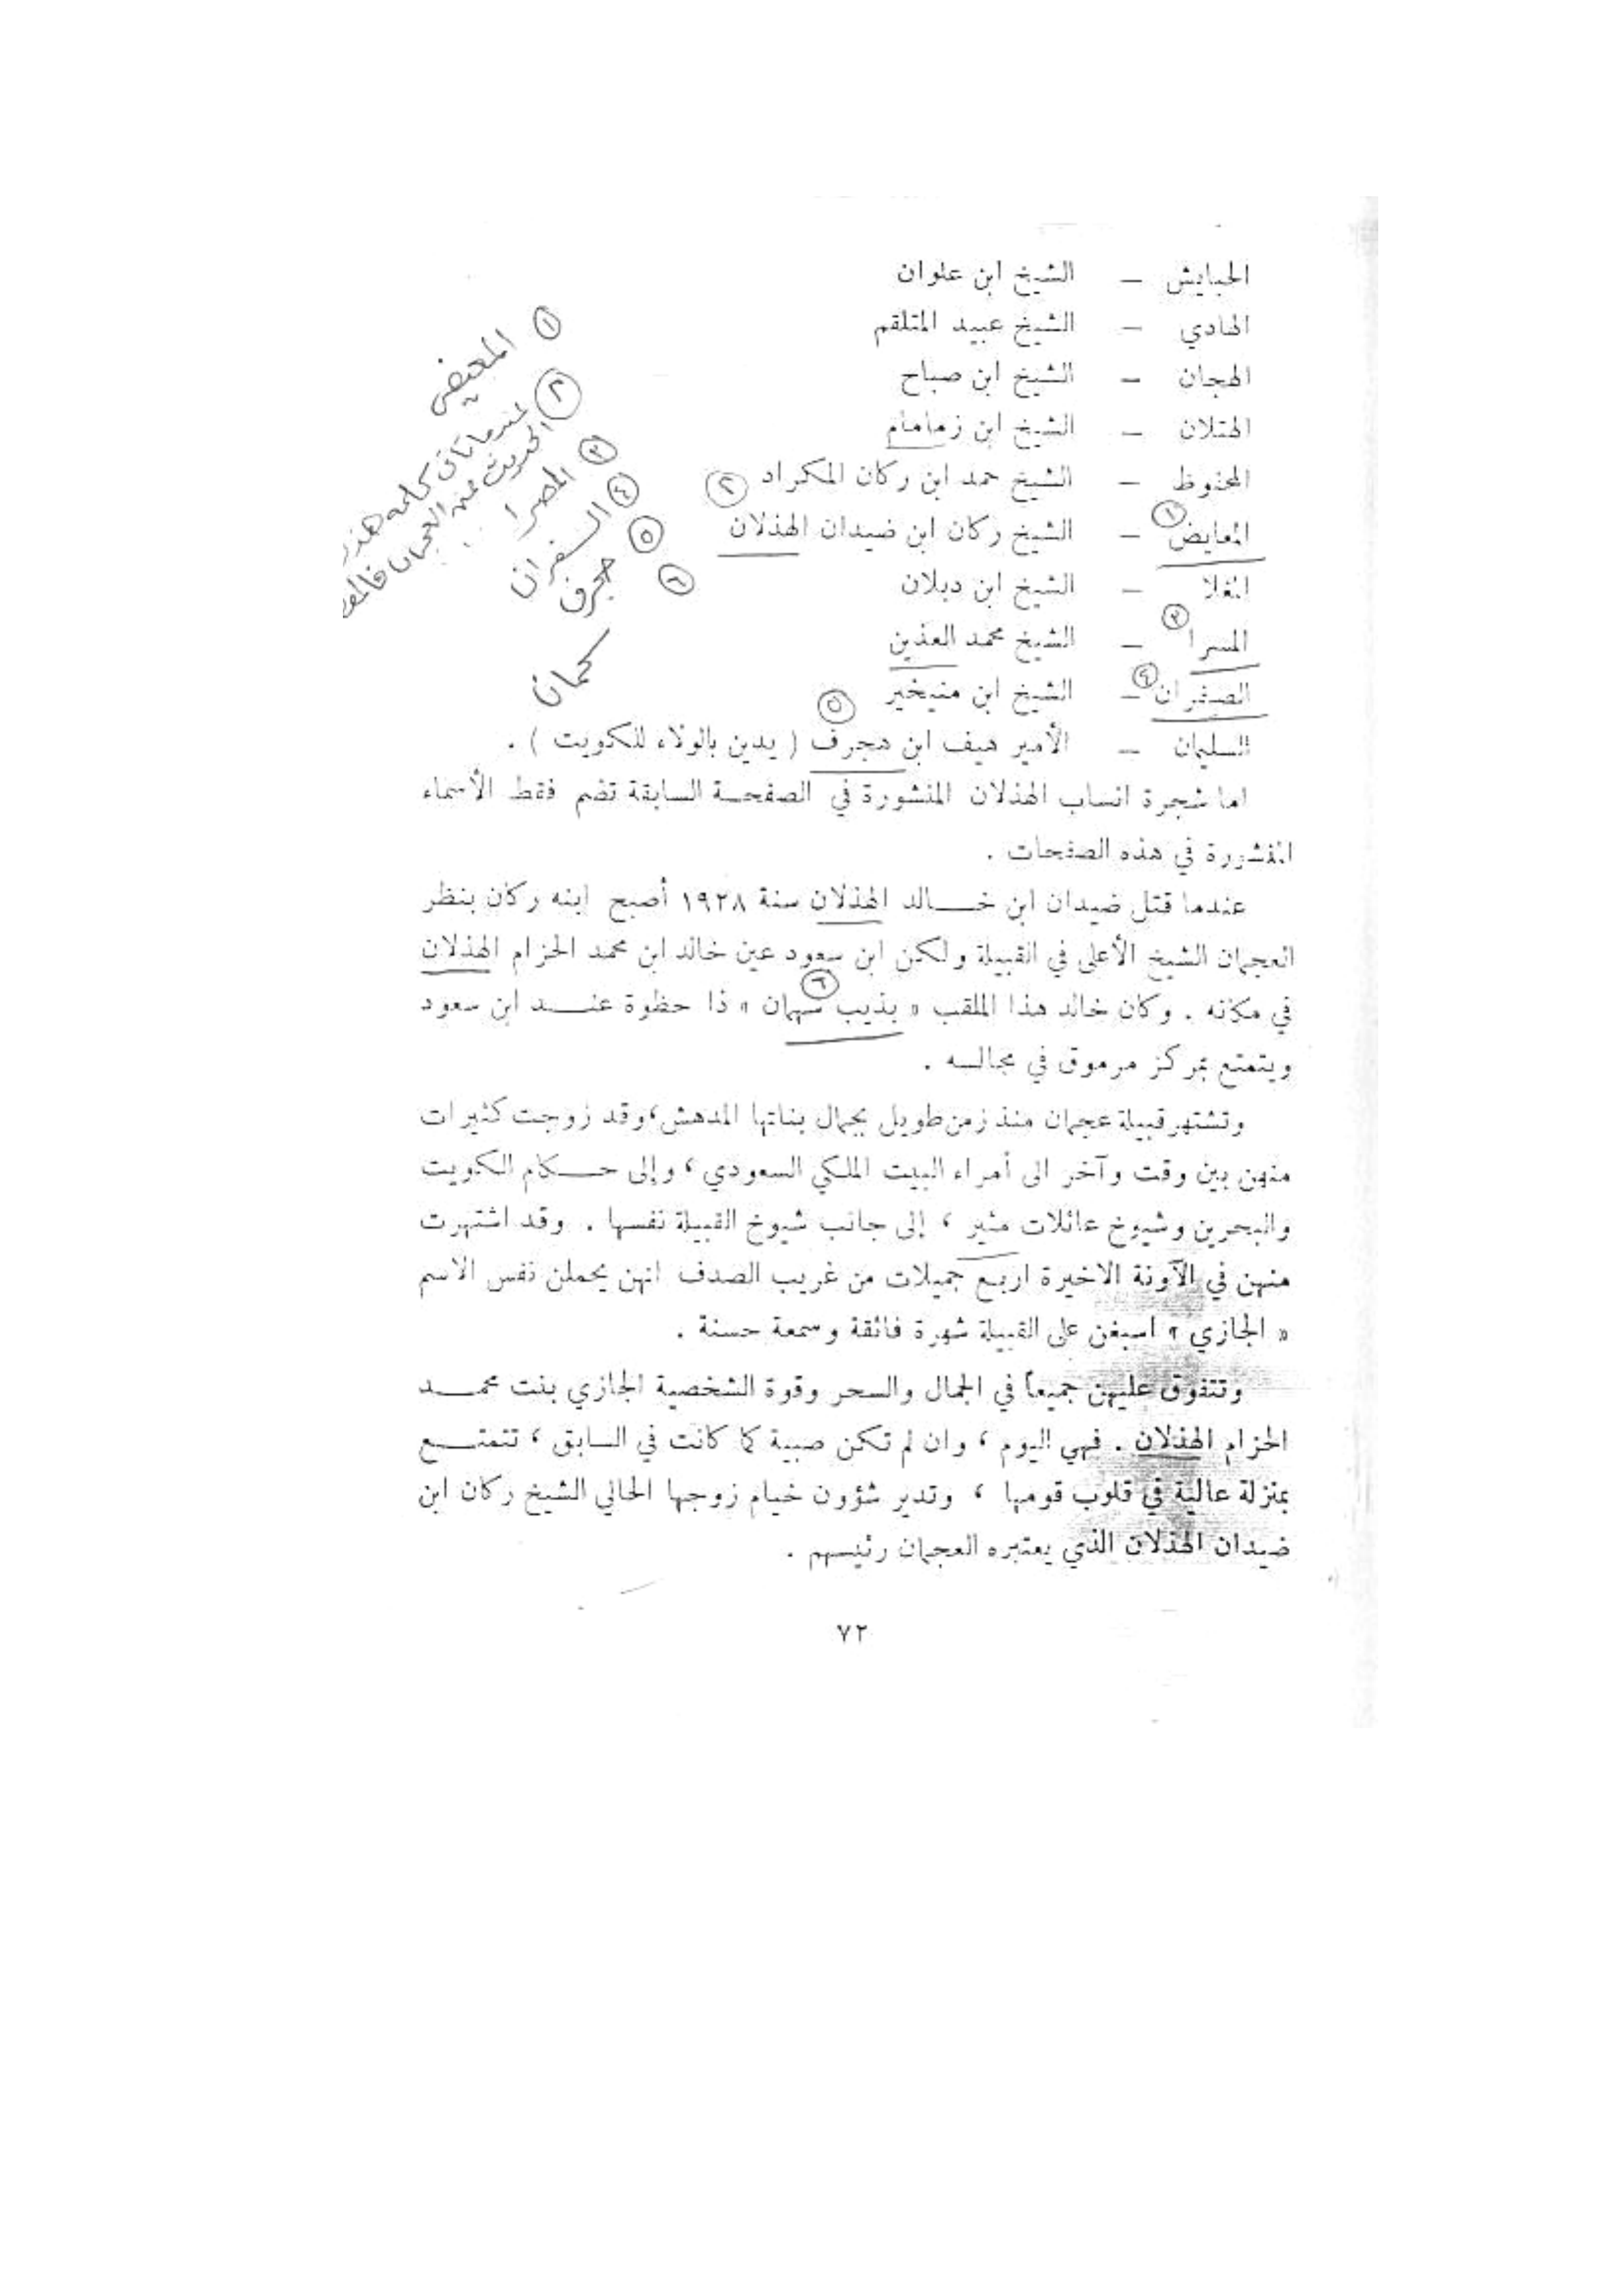 الحبايش – الشيخ ابن علوان
الهادي – الشيخ عبيد المتلقم
الهجان – الشيخ ابن صباح
الهتلان – الشيخ ابن زمامام
المحفوظ – الشيخ حمد ابن ركان المكراد ٢
المعايض ١ – الشيخ ركان ابن ضيدان الهذلان
الشيخ ابن دبلان
المسرا ٣ – الشيخ محمد العذين
الصفران ٤ – الشيخ ابن منيخير
السليمان – الأمير هيف ابن هجرف ٥ ( يدين بالولاء للكويت ) .
اما شجرة انساب الهذلان المنشورة في الصفحة السابقة تضم فقط الأسماء
المنشورة في هذه الصفحات .
عندما قتل ضيدان ابن خالد الهذلان سنة ١٩٢٨ أصبح ابنه ركان بنظر
العجمان الشيخ الأعلى في القبيلة ولكن ابن سعود عين خالد ابن محمد الحزام الهذلان
في مكانه . وكان خالد هذا الملقب « بذيب سهمان » ٦ ذا حظوة عند ابن سعود
ويتمتع بمركز مرموق في مجالسه .
وتشتهر قبيلة عجمان منذ زمن طويل بجمال بناتها المدهش ، وقد زوجت كثيرات
منهن بين وقت وآخر الى أمراء البيت الملكي السعودي ، وإلى حكام الكويت
والبحرين وشيوخ عائلات مثير ، إلى جانب شيوخ القبيلة نفسها . وقد اشتهرت
منهن في الآونة الاخيرة اربع جميلات من غريب الصدف انهن يحملن نفس الاسم
« الجازي » اسبغن على القبيلة شهرة فائقة وسمعة حسنة .
وتتفوق عليهن جميعاً في الجمال والسحر وقوة الشخصية الجازي بنت محمد
الحزام الهذلان . فهي اليوم ، وان لم تكن صبية كما كانت في السابق ، تتمتع
بمنزلة عالية في قلوب قومها ، وتدير شؤون خيام زوجها الحالي الشيخ ركان ابن
ضيدان الهذلان الذي يعتبره العجمان رئيسهم .
٧٢
١ المعيض
٢ عندما تأتي كلمة
الحديث عن العجمان
٣ المصرا
٤ السفران
٥ حجرف
٦